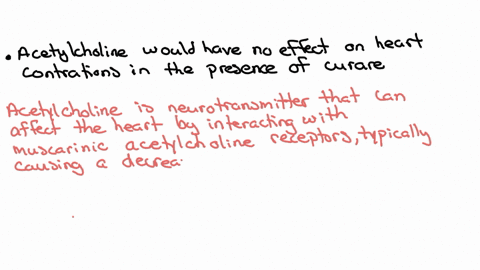 • Acetylcholine would have no effect on heart
contrations in the presence of curare
Acetylcholine is neurotransmitter that can
affect the heart by interacting with
muscarinic acetylcholine receptors, typically
causing a decrea